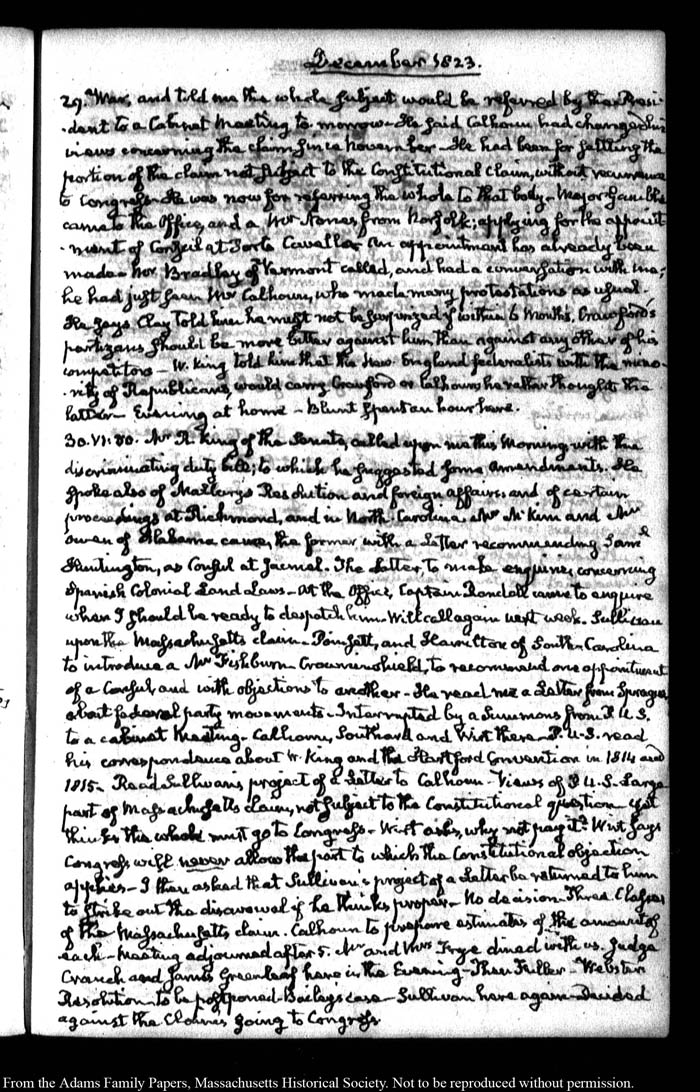 December 1823.
29. War, and told me the whole subject would be referred by the Presi-
-dent to a Cabinet Meeting to morrow. He said Calhoun had changed his
views concerning the claim since November. He had been for settling the
portion of the claim not subject to the Constitutional claim, without recurrence
to Congress. He was now for referring the whole to that body. Major
came to the Office, and a Mr Nones from Norfolk; applying for the appoint
-ment of Consul at Porto Cavallo. An appointment has already been
made. Mr Bradley of Vermont called, and had a conversation with me;
he had just seen Mr Calhoun, who made many protestations as usual.
He says Clay told him he must not be surprized if within 6 Months, Crawford's
partizans should be more bitter against him than against any other of his
competitors— W. King told him that the New-England federalists with the mino-
-rity of Republicans, would carry Crawford or Calhoun; he rather thought the
latter— Evening at home— Blunt spent an hour here.
30. VI:30. Mr R. King of the Senate, called upon me this Morning with the
discriminating duty bill; to which he suggested some amendments. He
spoke also of Mallary's Resolution and foreign affairs; and of certain
proceedings at Richmond, and in North-Carolina. Mr McKim and Mr
Owen of Alabama came, the former with a Letter recommending Saml
Huntington, as Consul at Jacmel. The latter, to make enquiries concerning
Spanish Colonial Land Laws— At the Office, Captain Randall came to enquire
when I should be ready to despatch him. Will call again next week. Sullivan
upon the Massachusetts claim. Poinsett, and Hamilton of South-Carolina
to introduce a Mr Fishburn. Crowninshield, to recommend one appointment
of a Consul, and with objections to another— He read me a Letter from Sprague
about federal party movements— Interrupted by a Summons from P.U.S.
to a cabinet Meeting. Calhoun, Southard and Wirt there— P.U.S. read
his correspondence about W. King and the Hartford Convention in 1814 and
1815. Read Sullivan's project of a Letter to Calhoun. Views of P.U.S. Large
part of Massachusetts claim, not subject to the Constitutional question yet
thinks the whole must go to Congress— Wirt asks, why not pay it? Wirt says
Congress will never allow the part to which the Constitutional objection
applies— I then asked that Sullivan's project of a Letter be returned to him
to strike out the disavowal if he thinks proper— No decision. Three Classes
of the Massachusetts claim. Calhoun to prepare estimates of the amount of
each— Meeting adjourned after 5. Mr and Mrs Frye dined with us. Judge
Cranch and James Greenleaf here in the Evening— Then Fuller— Webster
Resolution to be postponed. Baileys case— Sullivan here again. Decided
against the Claims going to Congress
From the Adams Family Papers, Massachusetts Historical Society. Not to be reproduced without permission.